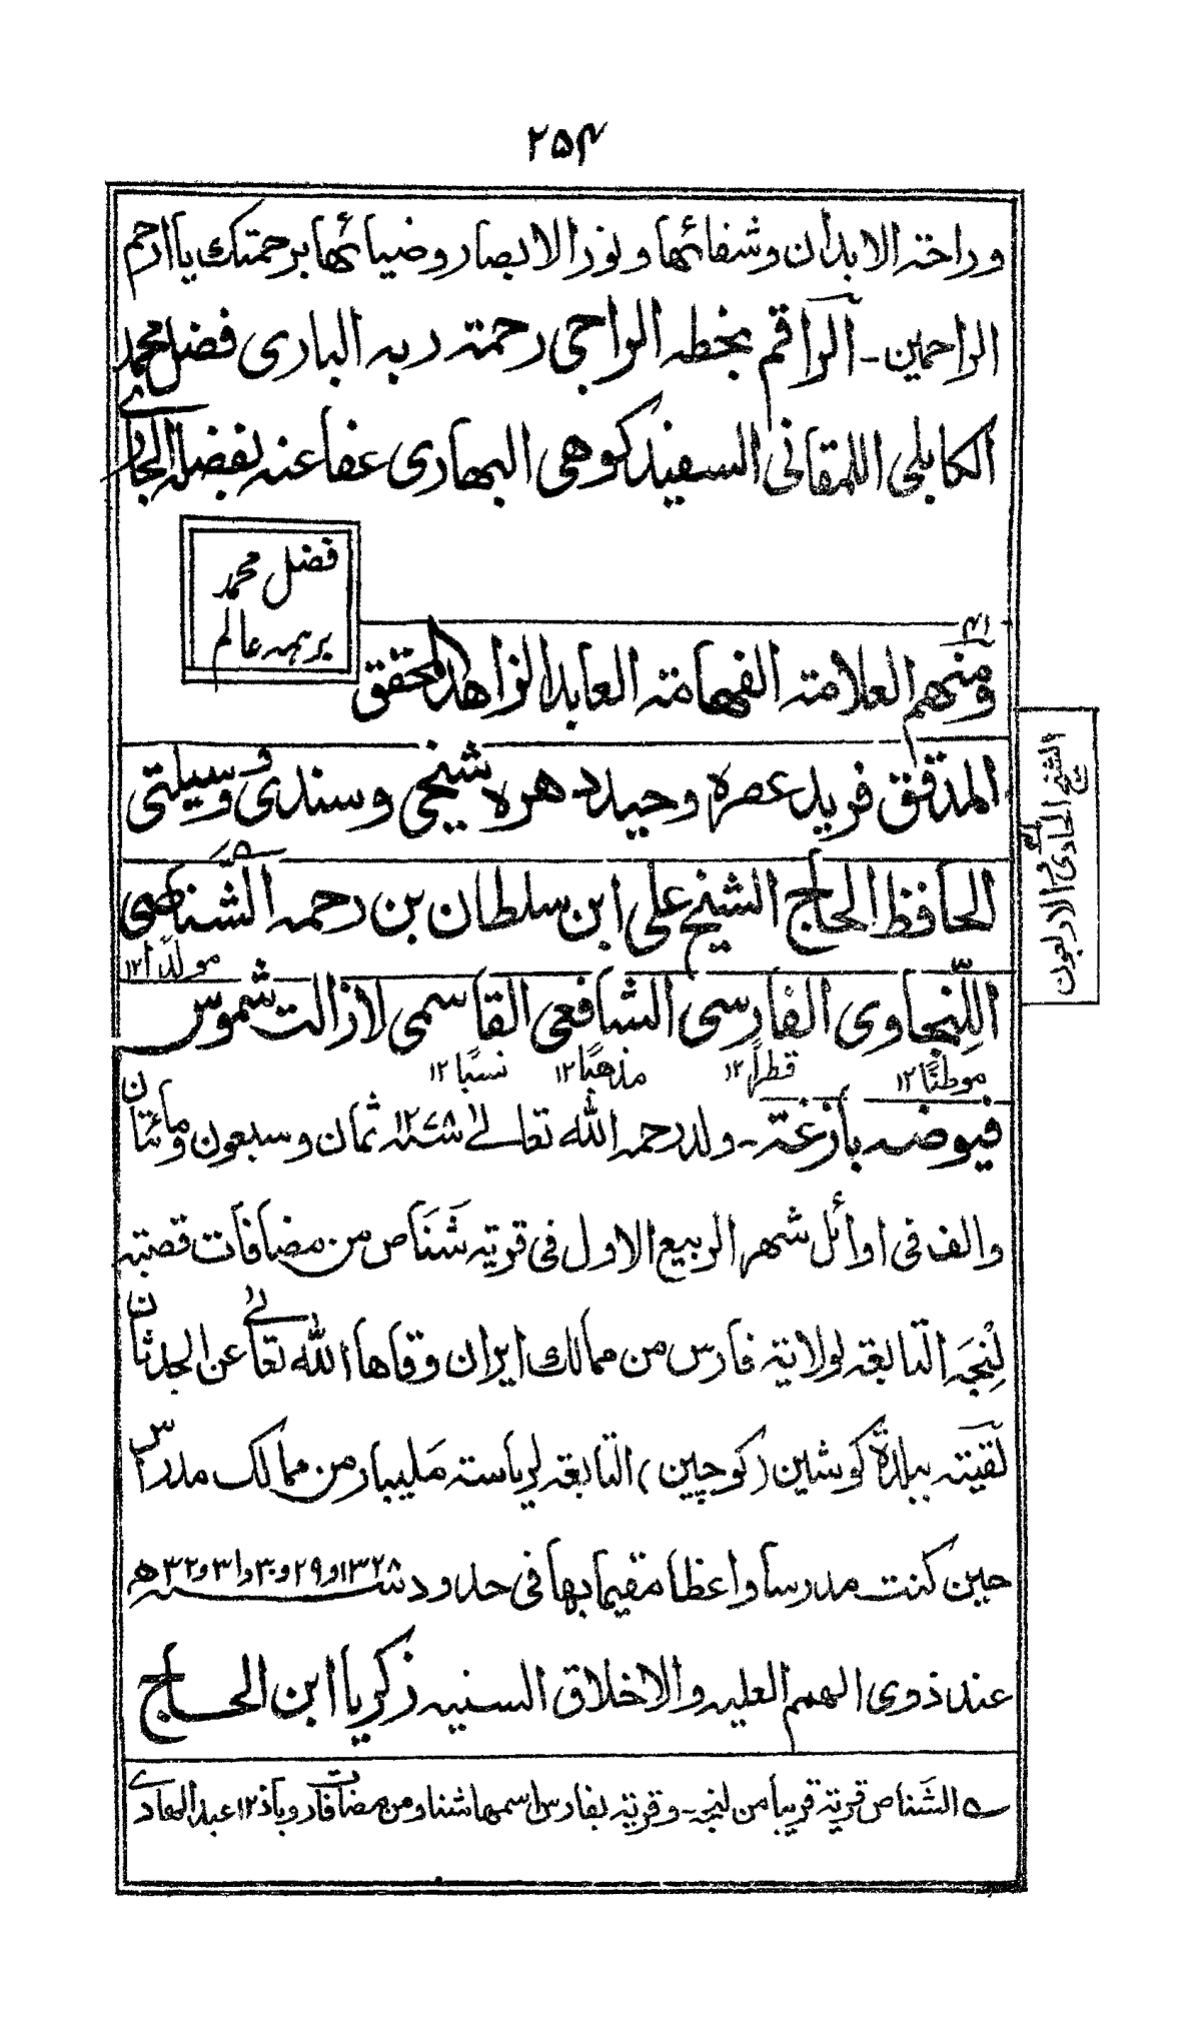 ۲۵۴
وراحة الابدان وشفائها ونور الابصار وضيائها برحمتك يا ارحم
الراحمين۔ الراقم بخطه الراجي رحمة ربه الباري فضل محمد
الكابلي اللمقاني السفيد كوهي البهاري عفا عنه بفضله الجاري
فضل محمد
بر همه عالم
۴۱
ومنهم العلامة الفهامة العابد الزاهد المحقق
المدقق فريد عصره وحيد دهره شيخي وسندي ووسيلتي
الحافظ الحاج الشيخ علي ابن سلطان بن رحمه الشناصي
مولدًا ۱۲
اللِّنجاوي الفارسي الشافعي القاسمي لازالت شموس
موطنًا ۱۲ قطرًا ۱۲ مذهبًا ۱۲ نسبًا ۱۲
فيوضه بازغة۔ ولد رحمه الله تعالى سنة ۱۲۷۸ ثمان وسبعون ومائتان
والف في اوائل شهر الربيع الاول في قرية شَنَاص من مضافات قصبة
لِنْجَه التابعة لولاية فارس من ممالك ايران وقاها الله تعالى عن الحدثان
لقيته ببلدة كوشين (كوچين) التابعة لرياسة مَليبار من ممالك مدراس
حين كنت مدرسا واعظا مقيما بها في حدود سنة ۱۳۲۸ و۲۹ و۳۰ و۳۱ و۳۲ ه
عند ذوي الهمم العليه والاخلاق السنيه زكريا ابن الحاج
الشيخ الحادي والاربعون
ے الشَناص قرية قريبا من لنجه۔ وقرية بفارس اسمها شناو من مضافات ۱۲ عبد الهادي